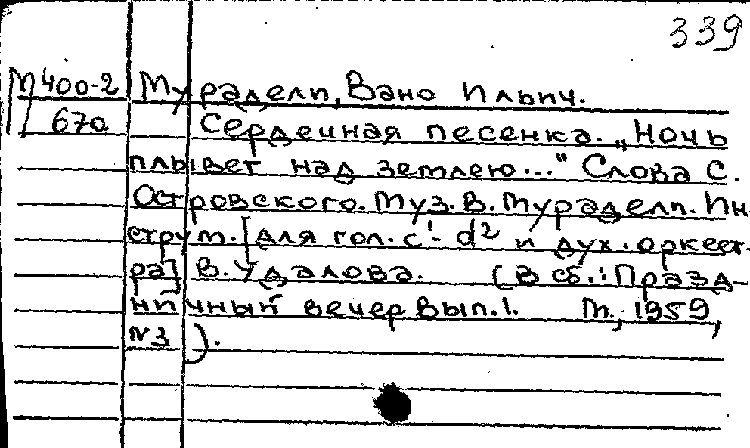 339
М400-2 Мурадели, Вано Ильич.
670 Сердечная песенка. „Ночь
плывет над землею..." Слова С.
Островского. Муз. В. Мурадели. Ин
струм. [для гол. c¹- d² и дух. оркест-
ра] В. Удалова. (В сб.: Празд-
ничный вечер Вып. 1. М., 1959,
№3).